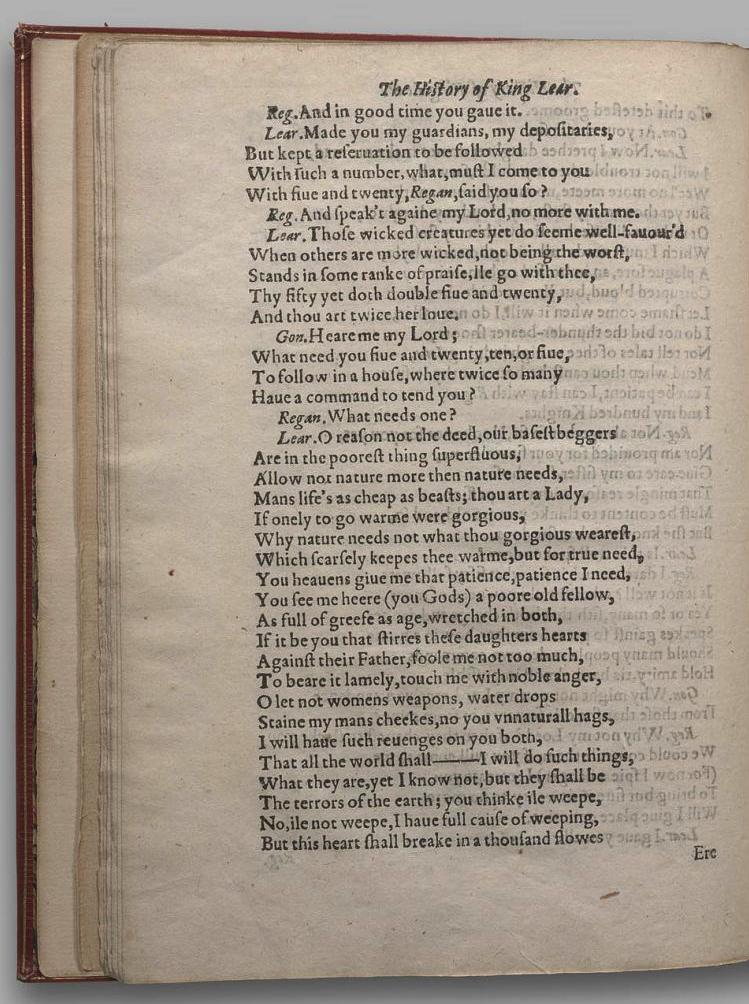 The Hiſtory of King Lear.
Reg. And in good time you gaue it.
Lear. Made you my guardians, my depoſitaries,
But kept a reſeruation to be followed
With ſuch a number, what, muſt I come to you
With fiue and twenty, Regan, ſaid you ſo?
Reg. And ſpeak't againe my Lord, no more with me.
Lear. Thoſe wicked creatures yet do ſeeme well-fauour'd
When others are more wicked, not being the worſt,
Stands in ſome ranke of praiſe, Ile go with thee,
Thy fifty yet doth double fiue and twenty,
And thou art twice her loue.
Gon. Heare me my Lord;
What need you fiue and twenty, ten, or fiue,
To follow in a houſe, where twice ſo many
Haue a command to tend you?
Regan. What needs one?
Lear. O reaſon not the deed, our baſeſt beggers
Are in the pooreſt thing ſuperfluous,
Allow not nature more then nature needs,
Mans life's as cheap as beaſts; thou art a Lady,
If onely to go warme were gorgious,
Why nature needs not what thou gorgious weareſt,
Which ſcarſely keepes thee warme, but for true need,
You heauens giue me that patience, patience I need,
You ſee me heere (you Gods) a poore old fellow,
As full of greefe as age, wretched in both,
If it be you that ſtirres theſe daughters hearts
Againſt their Father, foole me not too much,
To beare it lamely, touch me with noble anger,
O let not womens weapons, water drops
Staine my mans cheekes, no you vnnaturall hags,
I will haue ſuch reuenges on you both,
That all the world ſhall——I will do ſuch things,
What they are, yet I know not, but they ſhall be
The terrors of the earth; you thinke ile weepe,
No, ile not weepe, I haue full cauſe of weeping,
But this heart ſhall breake in a thouſand flowes
Ere